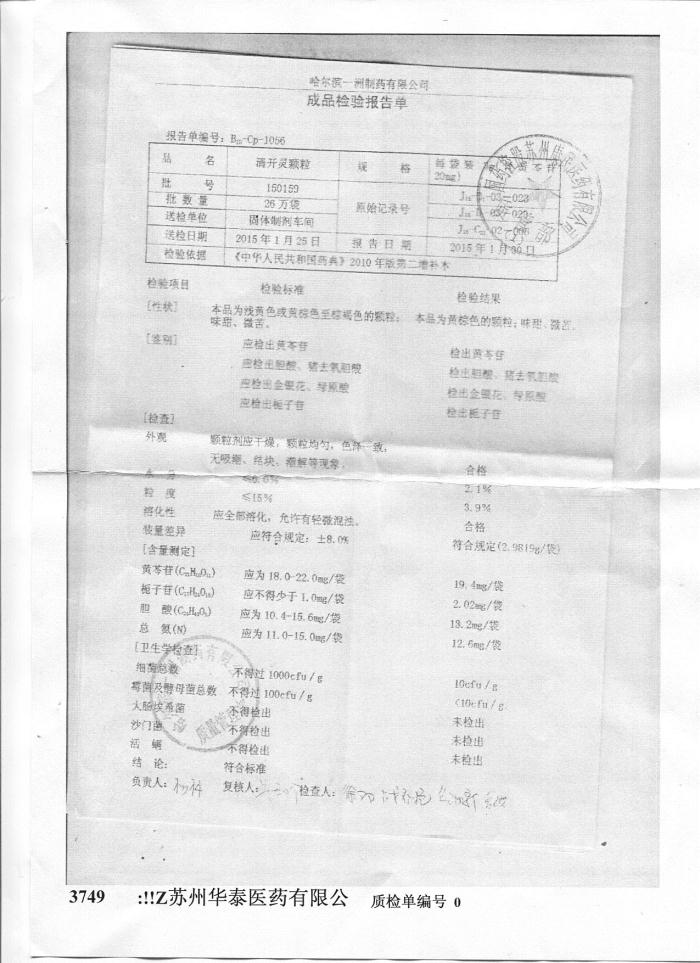 哈尔滨一洲制药有限公司
成品检验报告单
报告单编号：B₂₅-Cp-1056
品 名 清开灵颗粒 规 格 每袋装 20mg)
批 号 150159 原始记录号
批 数 量 26 万袋
送检单位 固体制剂车间
送检日期 2015 年 1 月 25 日 报 告 日 期 2015 年 1 月 30 日
检验依据 《中华人民共和国药典》2010 年版第二增补本
检验项目 检验标准 检验结果
[性状] 本品为浅黄色或黄棕色至棕褐色的颗粒； 本品为黄棕色的颗粒；味甜、微苦。
味甜、微苦。
[鉴别] 应检出黄芩苷 检出黄芩苷
应检出胆酸、猪去氧胆酸 检出胆酸、猪去氧胆酸
应检出金银花、绿原酸 检出金银花、绿原酸
应检出栀子苷 检出栀子苷
[检查]
外观 颗粒剂应干燥，颗粒均匀，色泽一致，
无吸潮、结块、潮解等现象。 合格
水 分 ≤6.0% 2.1%
粒 度 ≤15% 3.9%
溶化性 应全部溶化，允许有轻微混浊。 合格
装量差异 应符合规定：±8.0% 符合规定(2.9819g/袋)
[含量测定]
黄芩苷(C₂₁H₁₈O₁₁) 应为 18.0-22.0mg/袋 19.4mg/袋
栀子苷(C₁₇H₂₄O₁₀) 应不得少于 1.0mg/袋 2.02mg/袋
胆 酸(C₂₄H₄₀O₅) 应为 10.4-15.6mg/袋 13.2mg/袋
总 氮(N) 应为 11.0-15.0mg/袋 12.6mg/袋
[卫生学检查]
细菌总数 不得过 1000cfu／g 10cfu／g
霉菌及酵母菌总数 不得过 100cfu／g <10cfu／g
大肠埃希菌 不得检出 未检出
沙门菌 不得检出 未检出
活 螨 不得检出 未检出
结 论： 符合标准
负责人： 复核人： 检查人：
质量管理
3749 :!!Z苏州华泰医药有限公 质检单编号 0